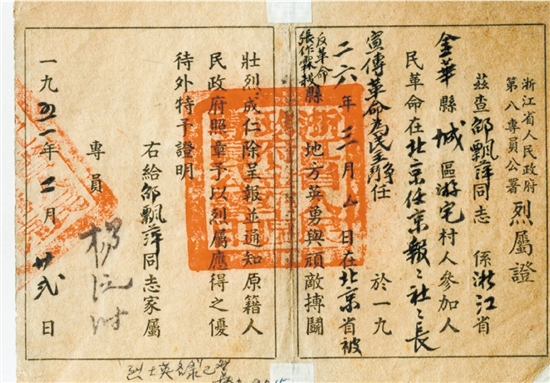 浙江省人民政府
第八專員公署
烈屬證
茲查邵飄萍同志 係浙江省
金華縣城區游宅村人參加人
民革命在北京任京報社社長
於一九
宣傳革命為民主將任
二六年 月 日在北京省被
反革命
張作霖 縣 地方英勇與頑敵搏鬬
壯烈成仁除呈報並通知原籍人
民政府照章予以烈屬應得之優
待外特予證明
右給邵飄萍同志家屬
專員
一九五一年二月廿 日